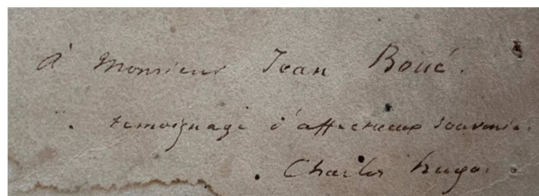 à Monsieur Jean Boué.
temoignage d'affectueux souvenir.
Charles hugo.